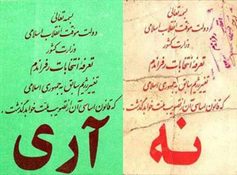 بسمه تعالی
دولت موقت انقلاب اسلامی
وزارت کشور
تعرفه انتخابات رفراندم
تغییر رژیم سابق به جمهوری اسلامی
که قانون اساسی آن از تصویب ملت خواهد گذشت
نه
بسمه تعالی
دولت موقت انقلاب اسلامی
وزارت کشور
تعرفه انتخابات رفراندم
تغییر رژیم سابق به جمهوری اسلامی
که قانون اساسی آن از تصویب ملت خواهد گذشت
آری